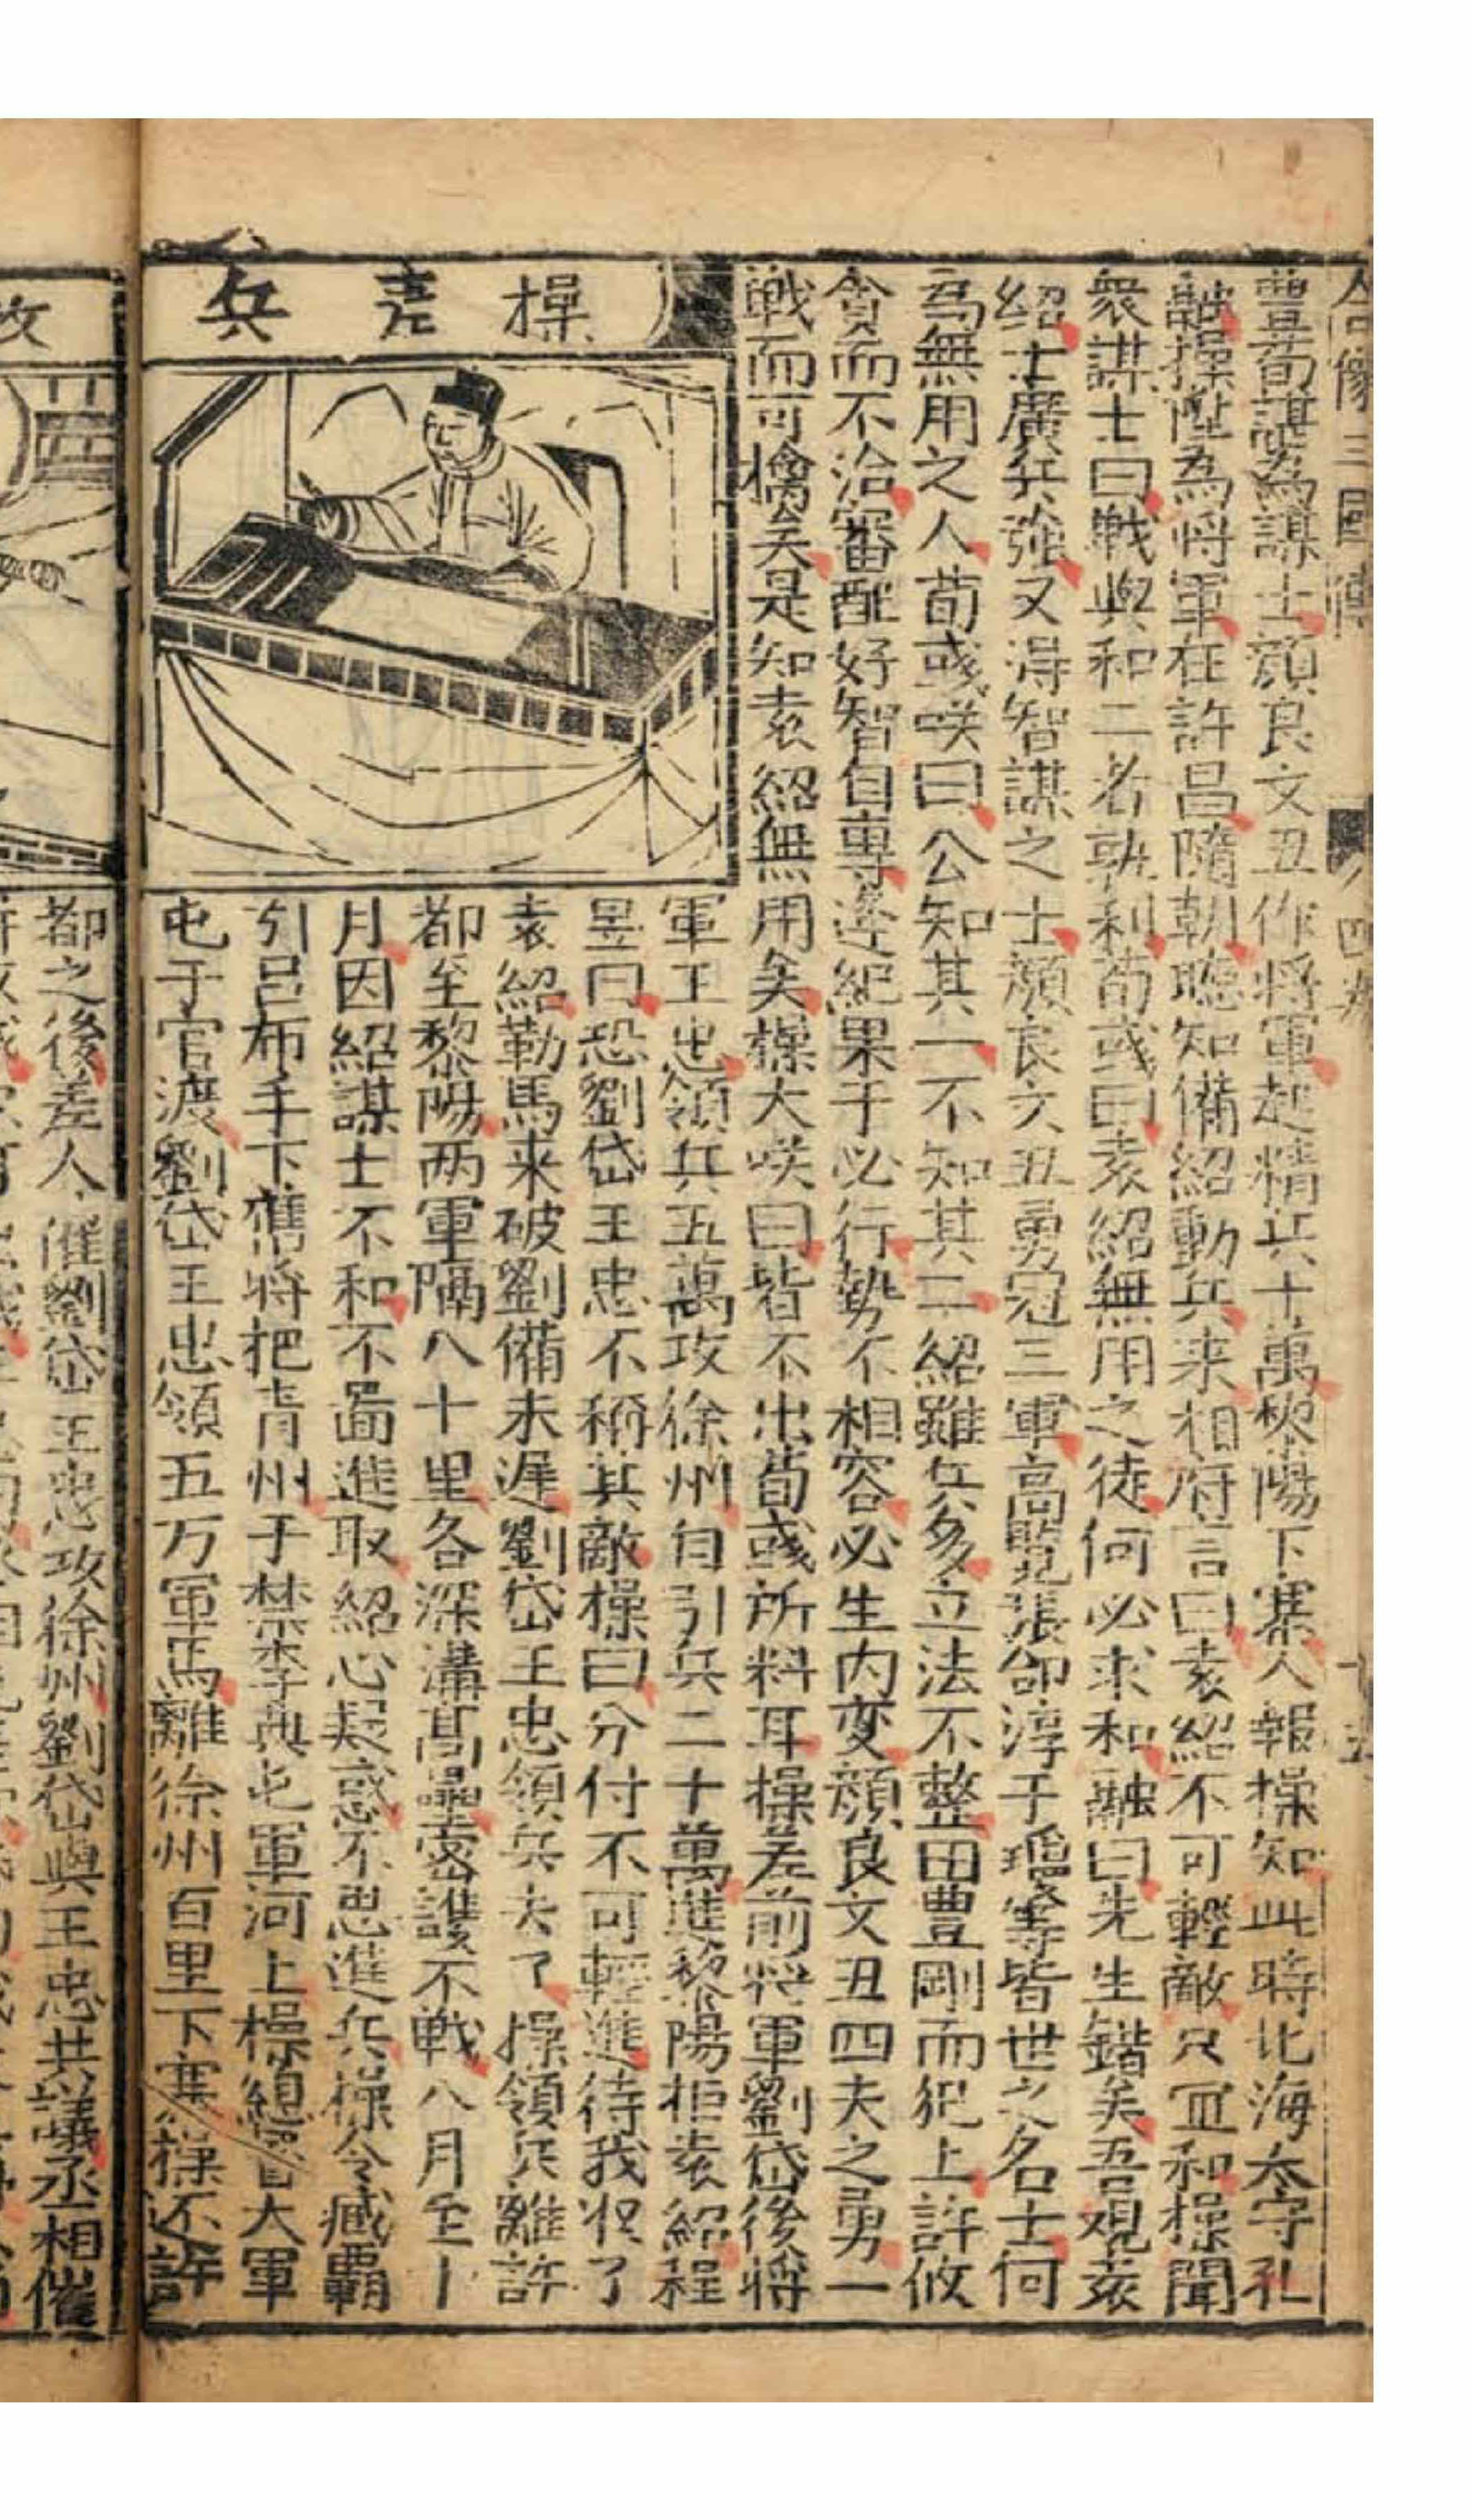 合像三國傳 四卷 十五
豐荀諶為謀士顔良文丑作將軍起精兵十萬黎陽下寨人報操知此時北海太守孔
融操陞為將軍在許昌隨朝聽知備紹動兵来相府言曰袁紹不可輕敵只宜和操聞
衆謀士曰戰與和二者孰利荀彧曰袁紹無用之徒何必求和融曰先生錯矣吾觀袁
紹士廣兵強又得智謀之士顔良文丑勇冠三軍高覽張郃淳于瓊等皆世之名士何
為無用之人荀彧咲曰公知其一不知其二紹雖兵多立法不整田豐剛而犯上許攸
貪而不治審配好智自專逄紀果于必行勢不相容必生内変顔良文丑四夫之勇一
戦而可擒矣是知袁紹無用矣操大咲曰皆不出荀彧所料耳操差前將軍劉岱後將
操差兵
軍王忠領兵五萬攻徐州自引兵二十萬進黎陽拒袁紹程
昱曰恐劉岱王忠不稱其敵操曰分付不可輕進待我收了
袁紹勒馬来破劉備未遲劉岱王忠領兵去了操領兵離許
都至黎陽两軍隔八十里各深溝髙壘密護不戦八月至十
月因紹謀士不和不啚進取紹心疑惑不思進兵操令臧霸
引吕布手下舊將把青州于禁李典屯軍河上操總督大軍
屯于官渡劉岱王忠領五万軍馬離徐州百里下寨操不許
攻
都之後差人催劉岱王忠攻徐州劉岱與王忠共議丞相催